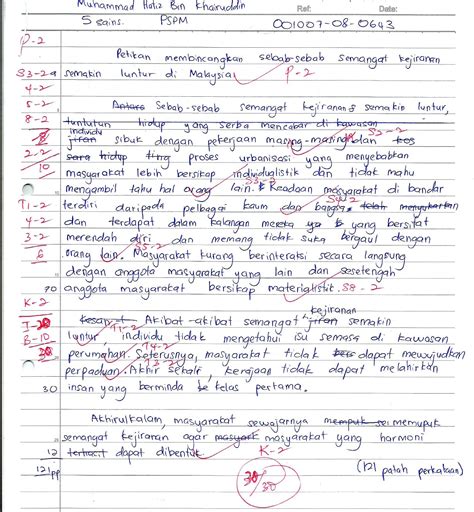 Muhammad Hafiz Bin Khairuddin Ref: Date:
5 Sains. PSPM 001007-08-0643
P-2
Petikan membincangkan sebab-sebab semangat kejiranan
S3-2 semakin luntur di Malaysia. P-2
4-2
5-2 Antara Sebab-sebab semangat kejiranan semakin luntur,
8-2 tuntutan hidup yang serba mencabar di kawasan
individu
8 jiran sibuk dengan pekerjaan masing-masing dan S2-2
2-2 hidup proses urbanisasi yang menyebabkan
10 masyarakat lebih bersikap individualistik dan tidak mahu
S3-2
mengambil tahu hal orang lain. Keadaan masyarakat di bandar
S4-2
T1-2 terdiri daripada pelbagai kaum dan bangsa telah
4-2 dan terdapat dalam kalangan mereka yg bersifat
3-2 merendah diri dan memang tidak suka bergaul dengan
S5-2
6 orang lain. Masyarakat kurang berinteraksi secara langsung
dengan anggota masyarakat yang lain dan sesetengah
70 anggota masyarakat bersikap materialistik. S8-2
K-2
kejiranan
I-20 Kesan Akibat-akibat semangat jiran semakin
T1-2
B-10 luntur, individu tidak mengetahui isu semasa di kawasan
T4-2
30 perumahan. Seterusnya, masyarakat tidak dapat mewujudkan
T3-2
perpaduan. Akhir sekali kerajaan tidak dapat melahirkan
30 insan yang berminda kelas pertama.
Akhirulkalam, masyarakat sewajarnya mempuk memupuk
semangat kejiranan agar masyark masyarakat yang harmoni
12 dapat dibentuk. K-2
121pp 30/30 (121 patah perkataan)